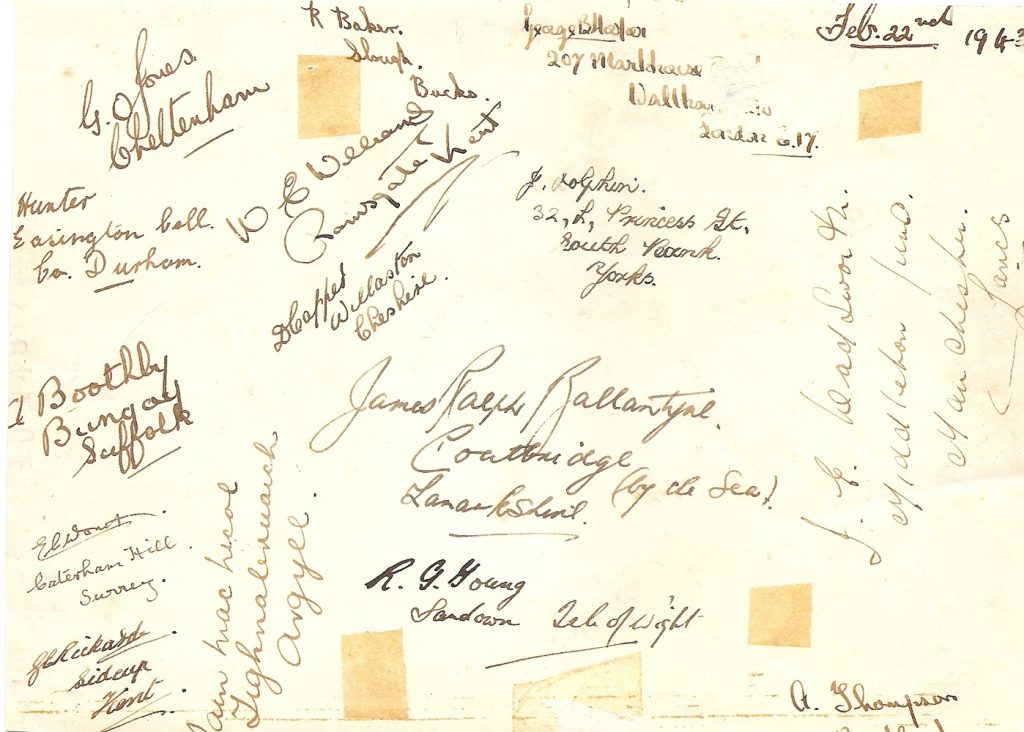 R Baker.
Slough.
Bucks.
George
207 Markhouse
London E.17.
Feb. 22nd 1943
G. O Jones
Cheltenham
W E Welland
Ramsgate Kent
Hunter
Easington Coll.
Co. Durham.
J. Dolphin.
32, L, Princess St,
South Bank.
Yorks.
D Capper
Willaston
Cheshire.
Middleton Junc.
Manchester.
Lancs
A Boothby
Bungay
Suffolk
James Ralph Ballantyne.
Coatbridge
(by the Sea)
Lanarkshire.
Caterham Hill
Surrey.
Tighnabruaich
Argyll.
R. G. Young
Sandown Isle of Wight
Rickard
Sidcup
Kent.
A. Thompson